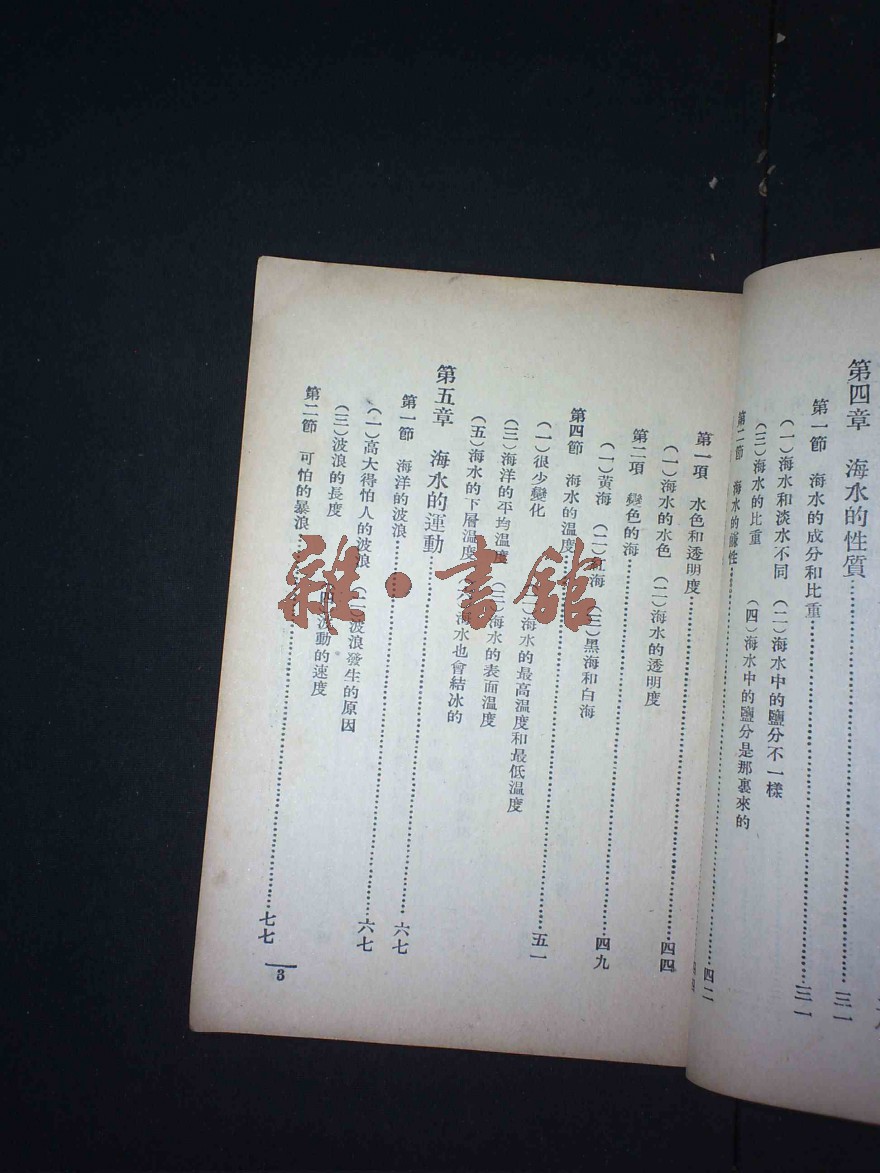 第四章　海水的性質………三一
第一節　海水的成分和比重………三一
（一）海水和淡水不同　（二）海水中的鹽分不一樣
（三）海水的比重　（四）海水中的鹽分是那裏來的
第二節　海水的鹹性………四二
第一項　水色和透明度………四四
（一）海水的水色　（二）海水的透明度
第二項　變色的海………四九
（一）黃海　（二）紅海　（三）黑海和白海
第四節　海水的溫度………五一
（一）很少變化　（二）海水的最高溫度和最低溫度
（三）海洋的平均溫度　（四）海水的表面溫度
（五）海水的下層溫度　海水也會結冰的
第五章　海水的運動………六七
第一節　海洋的波浪………六七
（一）高大得怕人的波浪　（二）波浪發生的原因
（三）波浪的長度　（四）波動的速度
第二節　可怕的暴浪………七七
3
雜·書館